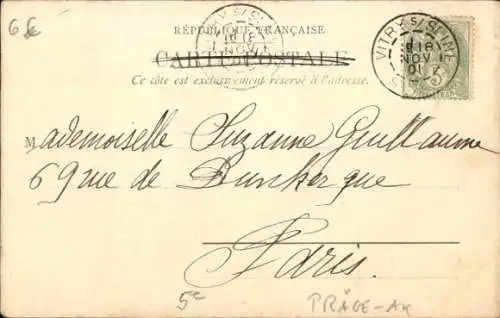 6€
RÉPUBLIQUE FRANÇAISE
CARTE POSTALE
Ce côté est exclusivement réservé à l'adresse.
VITRY S/ SEINE
18
NOV
01
VITRY S/ SEINE
NOV
Mademoiselle Suzanne Guillaume
69 rue de Dunkerque
Paris.
5e
PRÄGE-AK